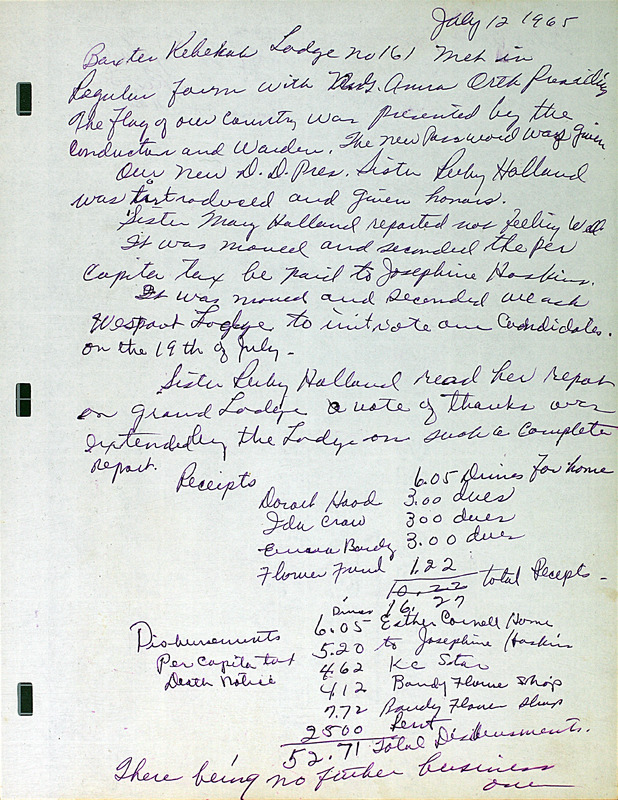 July 12 1965
Baxter Rebekah Lodge no 161 met in
Regular form with N.G. Anna Orth Presiding
The Flag of our Country was presented by the
Conductor and Warden. The new Password was given
Our new D.D. Pres. Sister Ruby Holland
was introduced and given honors.
Sister May Holland reported not feeling well
It was moved and seconded the per
Capita tax be paid to Josephine Hoskins.
It was moved and seconded we ask
Westport Lodge to initiate our Candidates.
on the 19th of July.
Sister Ruby Holland read her report
on grand Lodge a vote of thanks was
extended by the Lodge on such a complete
report.
Receipts 6.05 Dimes For home
Hood 3.00 dues
Ida Craw 300 dues
Emma Bandy 3.00 dues
Flower Fund 1.22
10.22 total Receipts -
Dimes 16.27
Disbursements 6.05 Esther Cornell Home
Per Capita tax 5.20 to Josephine Hoskins
Death Notice 4.62 KC Star
4.12 Bandy Flower Shop
7.72 Bandy Flower Shop
2500 Rent
52.71 Total Disbursements.
There being no futher business
our